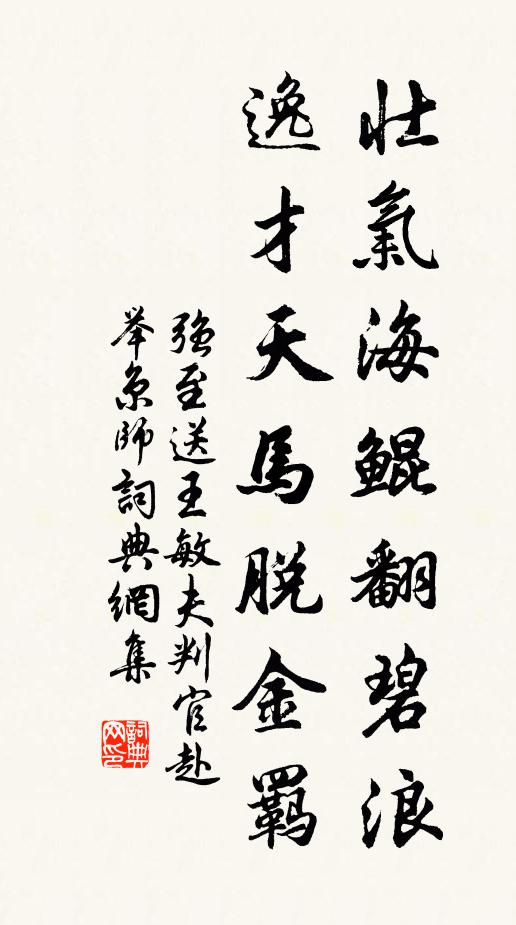 壯氣海鯤翻碧浪
逸才天馬脱金羈
強至送王敏夫判官赴
举京師詞典網集
詞典網印